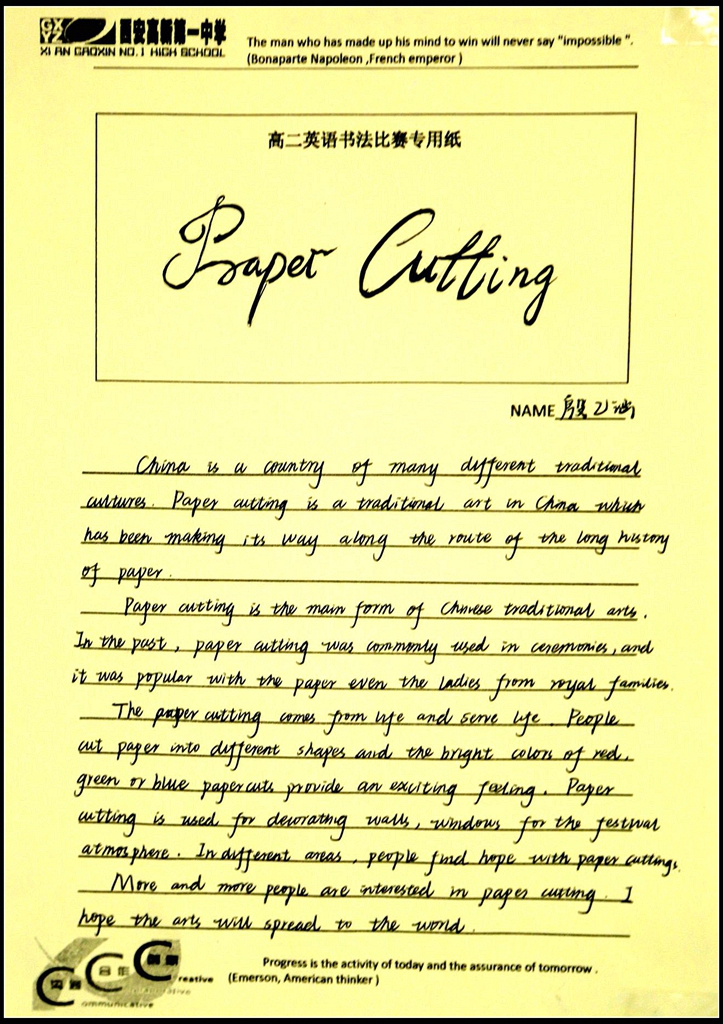 GX YZ 西安高新第一中学
XI AN GAOXIN NO.1 HIGH SCHOOL
The man who has made up his mind to win will never say "impossible ".
(Bonaparte Napoleon ,French emperor )
高二英语书法比赛专用纸
Paper Cutting
NAME 殷乙
China is a country of many different traditional
cultures. Paper cutting is a traditional art in China which
has been making its way along the route of the long history
of paper.
Paper cutting is the main form of Chinese traditional arts.
In the past, paper cutting was commonly used in ceremonies, and
it was popular with the paper even the ladies from royal families.
The paper cutting comes from life and serve life. People
cut paper into different shapes and the bright colors of red,
green or blue papercuts provide an exciting feeling. Paper
cutting is used for decorating walls, windows for the festival
atmosphere. In different areas, people find hope with paper cuttings.
More and more people are interested in paper cutting. I
hope the arts will spread to the world.
Progress is the activity of today and the assurance of tomorrow .
(Emerson, American thinker )
CCC
合作
reative
ommunicative